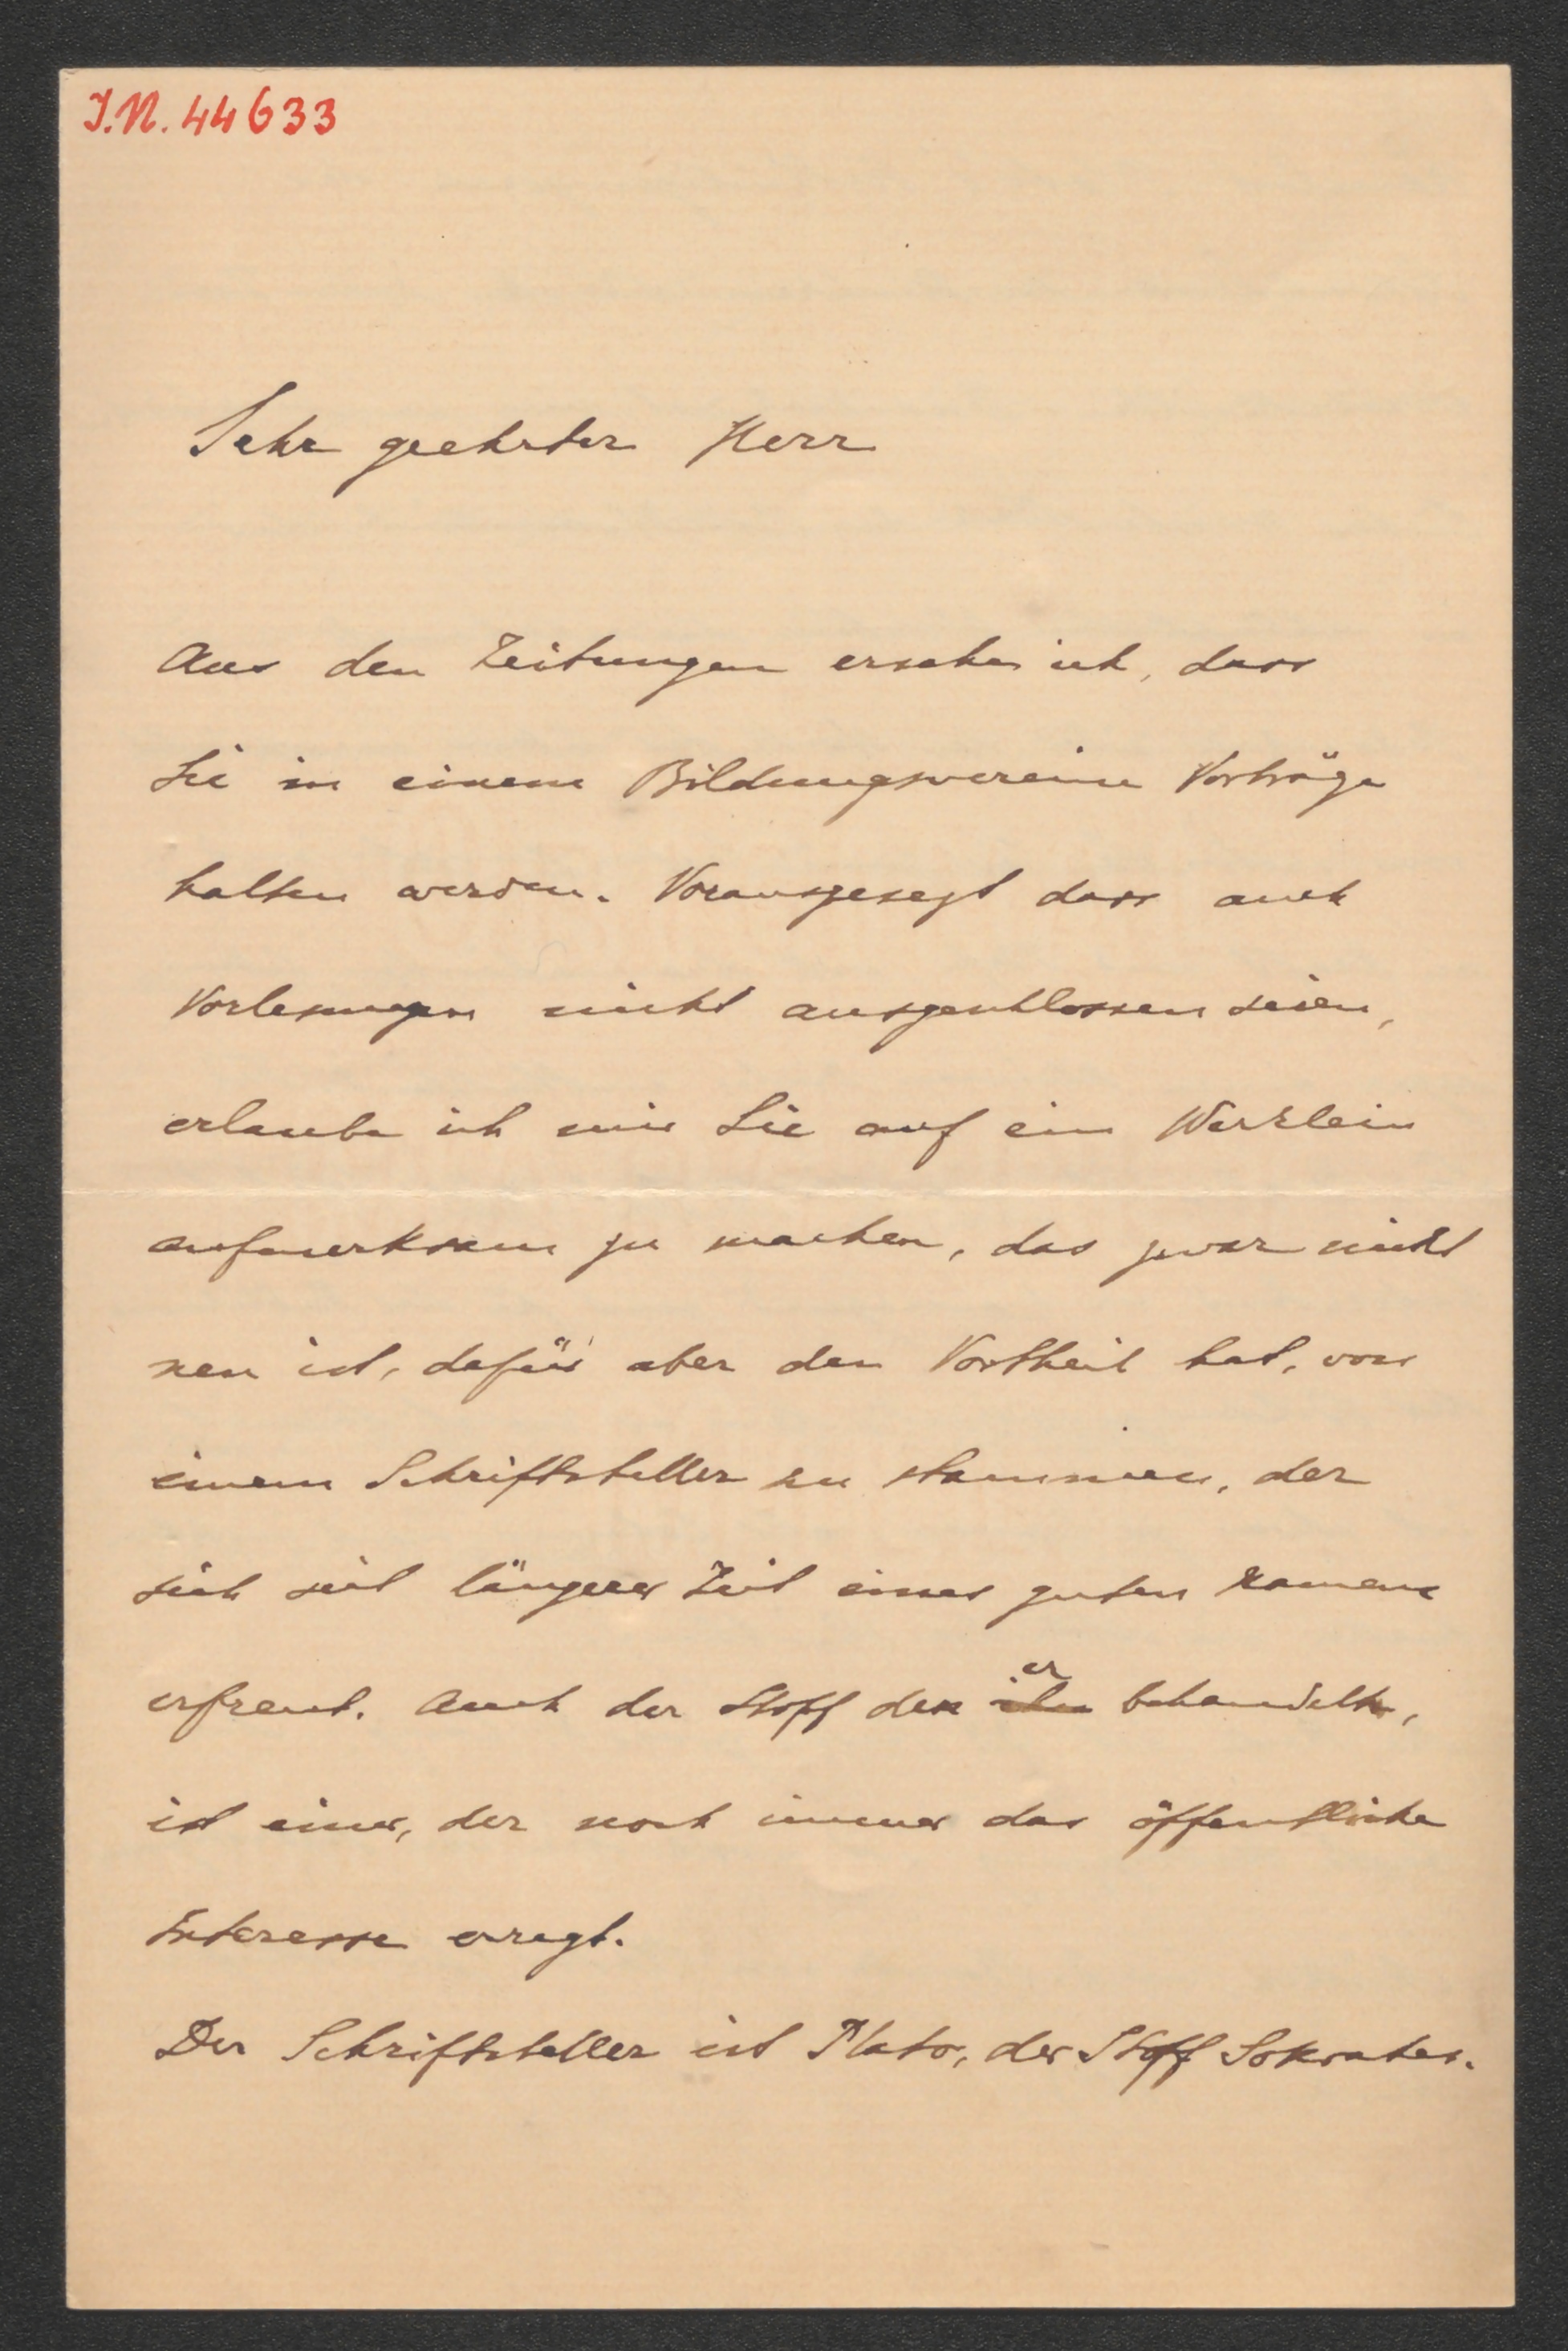 I.N. 44633
Sehr geehrter Herr
Aus den Zeitungen ersehe ich, dass
Sie in einem Bildungsvereine Vorträge
halten werden. Vorausgesezt dass auch
Vorlesungen nicht ausgeschlossen seien,
erlaube ich mir Sie auf ein Werklein
aufmerksam zu machen, das zwar nicht
neu ist, dafür aber den Vortheil hat, von
einem Schriftsteller zu stammen, der
sich seit längerer Zeit eines guten Namens
erfreut. Auch der Stoff den er behandelt,
ist einer, der noch immer das öffentliche
Interesse erregt.
Der Schriftsteller ist Plato, der Stoff Sokrates.